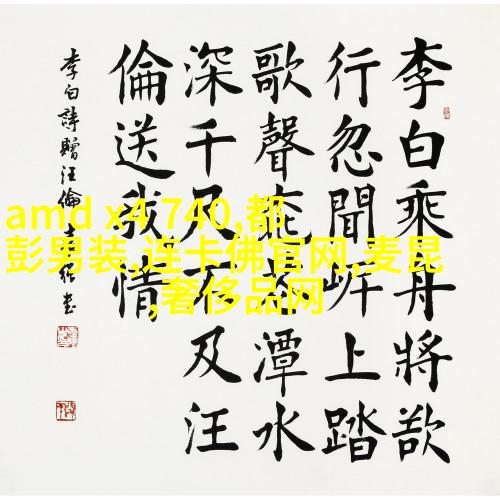 李白乘舟將欲
行忽聞岸上踏
歌聲桃花潭水
深千尺不及汪
倫送我情
李白詩贈汪倫 書
amd x4 740,都
彭男装,连卡佛官网,麦昆
,奢侈品网